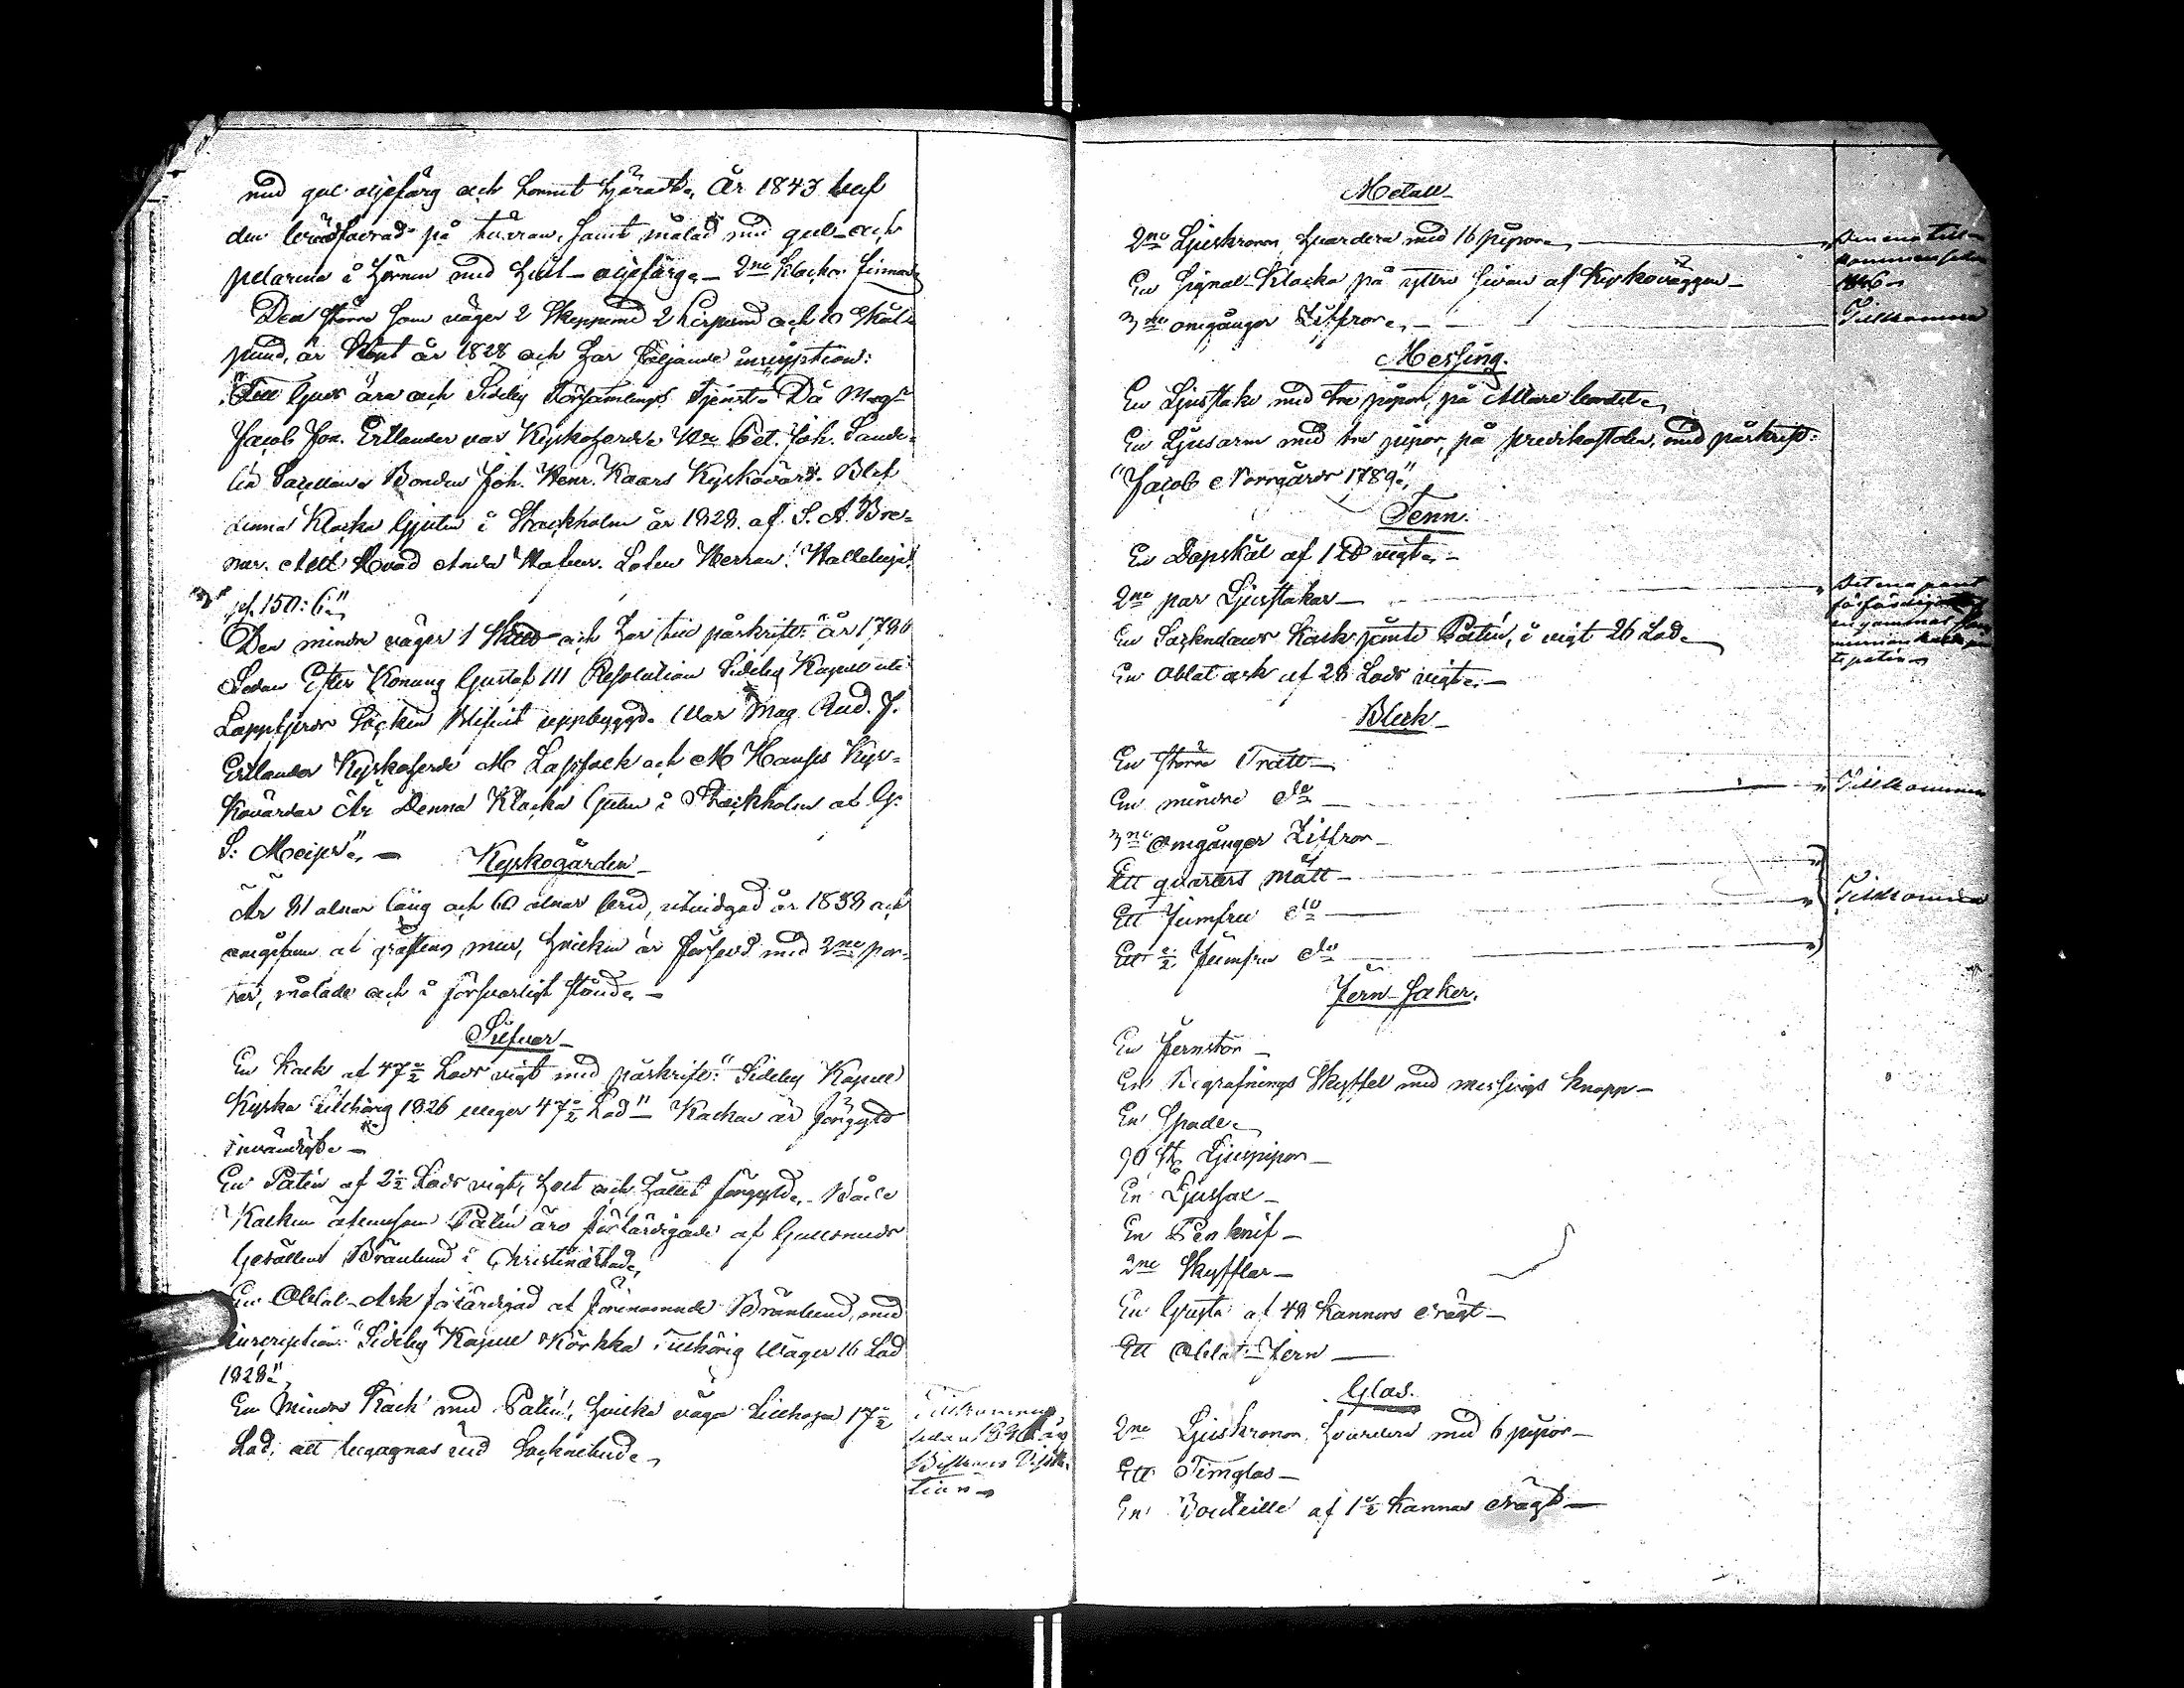 med gul oljefärg och hvitt
År 1843 blef
den brädfodrad på tornen, samt målad med gul och
pelarne i hörnen med hvit oljefärg. 2ne klockor finnas
Den större som väger 2 Skeppund 2 Lispund och 10 Skål-
pund, är år 1828 och har följande inscription:
"Till Guds ära och Sideby Församlings tjenst. Då Mag:r
Jacob Joh. Estlander var Kyrkoherde Hr Pet. Joh. Sande-
lin Sacellan Bonden Joh. Henr. Kaars Kyrkovärd. Blef
denna Klocka Gjuten i Stockholm år 1828 af S. A. Bre-
mer. Allt Hvad Anda Hafver. Lofven Herran! Halleluja!
ps. 150: 6."
Den mindre väger 1 och har till påskrift: "År 1780
Sedan Efter Konung Gustaf III Resolution Sideby Kapell uti
Lappfjerds Blifvit uppbygd. Var Mag. And. J.
Estlander Kyrkoherde M Lassfolk och M Hanses Kyr-
kovärdar Är Denna Klocka Guten i Stockholm af G.
S. Meijer". —
Kyrkogården
Är 81 alnar lång och 60 alnar bred, utvidgad år 1838 och
omgifven af mur, hvilken är försedd med 2ne por-
tar, målade och i försvarligt stånd. —
Silfver
En Kalk af 47½ Lods vigt med påskrift: "Sideby Kapell
Kyrka tillhörig 1826 weger 47½ Lod" Kalken är förgyld
invändigt. —
En Patén af 2½ Lods vigt, helt och hållet förgyld. Både
Kalken äfvensom Patén äro förfärdigade af Guldsmeds
Gesällen Brånlund i Christinestad.
En Oblat-Ask förfärdigad af förenämnde Brånlund, med
inscription: "Sideby Kapell Körkka Tillhörig Wäger 16 Lod
1828".
En Mindre Kalk med Patén, hvilka väga tillhopa 17½
Lod, att begagnas vid Sockenbud.
Tillkommen
sedan
Biskops Visita-
tion
Metall
2ne Ljuskronor hvardera med 16 pipor.
Den ena till-
kommen sedan
1846
En Signal-Klocka på yttre sidan af Kyrkoväggen
3ne omgånger Ziffror.
Tillkomna
Messing.
En Ljusstake med tre pipor, på Altare bordet.
En Ljusarm med tre pipor, på predikostolen, med påskrift:
"Jacob Norrgård 1789".
Tenn.
En Dopskål af 1 vigt.
2ne par Ljusstakar
Det ena paret
En Sockenbuds Kalk jemte Patén, i vigt 26 Lod.
En Oblat ask af 28 Lods vigt.
Bleck
En större Tratt
En mindre do
Tillkommen
3ne omgånger Ziffror
Ett qvarters Mått
Ett Jumfru do
Tillkomna
Ett ½ Jumfru do
Jern-Saker.
En Jernstör
En Begrafnings Skyffel med messings knapp
En Spade
90 St. Ljuspipor
En Ljussax
En Pen knif
2ne Skyfflar
En Gryta af 48 Kannors drägt
Ett Oblat-Jern
Glas.
2ne Ljuskronor hvardera med 6 pipor
Ett Timglas
En Bouteille af 1½ Kannas drägt